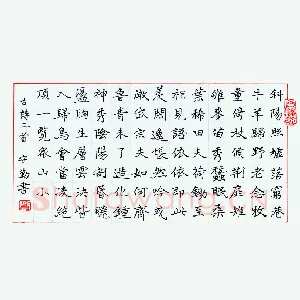 斜陽照墟落窮巷
牛羊歸野老念牧
童倚杖候荊扉雉
雊麥苗秀蠶眠桑
葉稀田夫荷鋤至
相見語依依即此
羨閒逸悵然吟式
微岱宗夫如何齊
魯青未了造化鍾
神秀陰陽割昏曉
盪胸生層雲決眥
入歸鳥會當凌絕
頂一覽眾山小
古詩二首